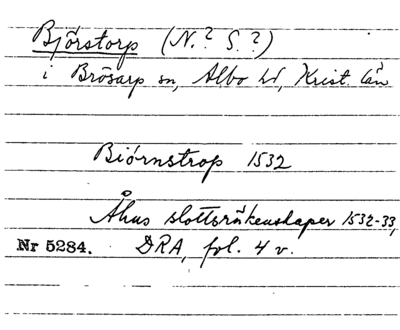 Björstorp (N.? S.?)
i Brösarp sn, Albo hd, Krist. län
Biörnstrop 1532
Åhus slottsräkenskaper 1532-33,
Nr 5284. DRA, fol. 4 v.